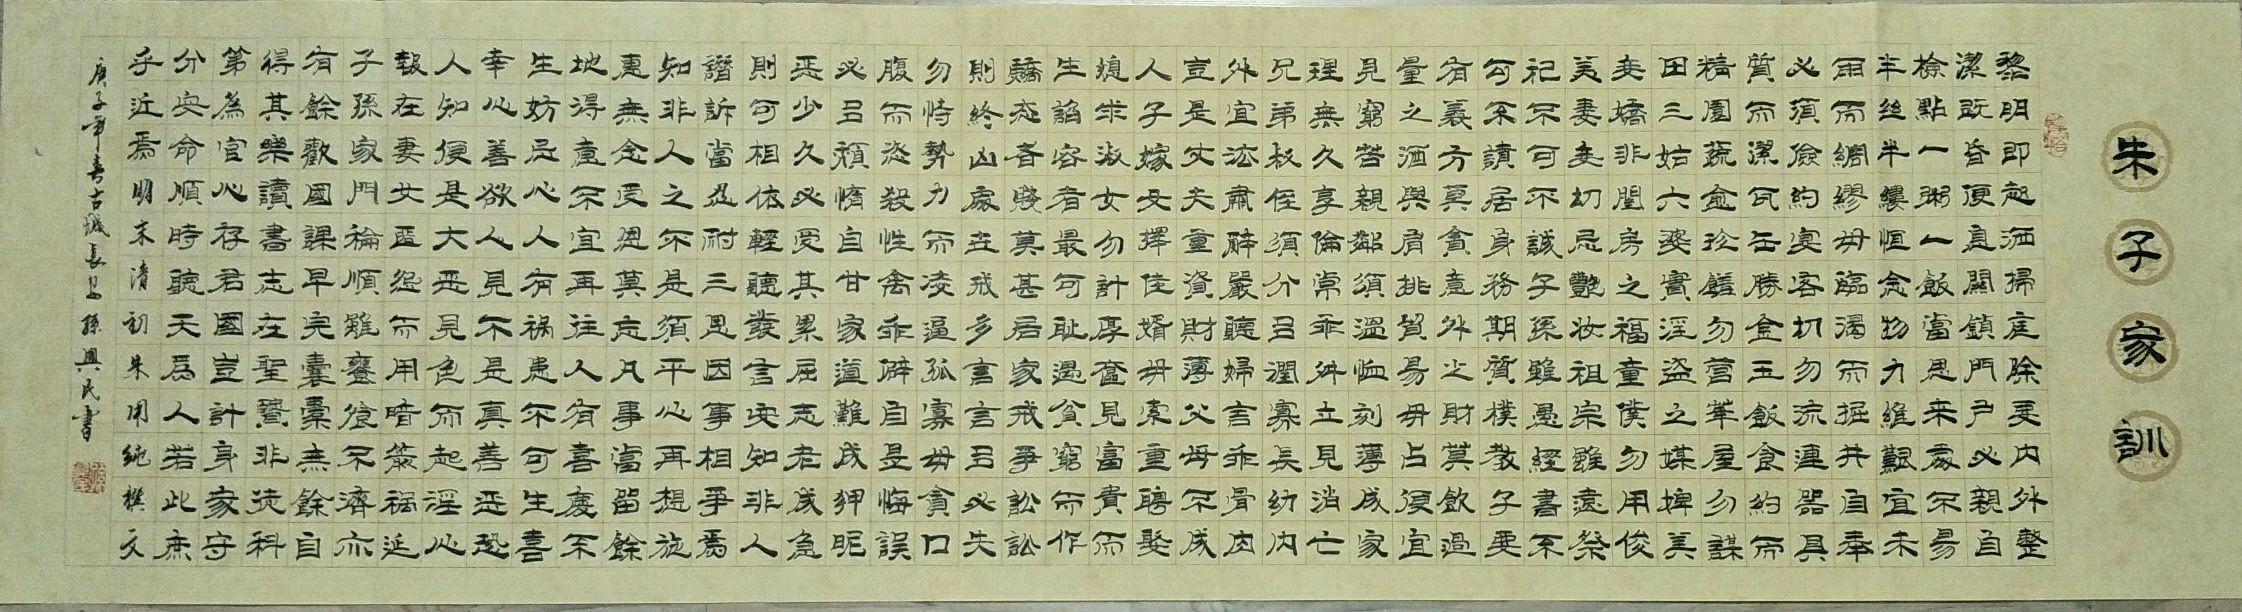 朱子家訓
黎明即起洒掃庭除要內外整
潔既昏便息關鎖門戶必親自
檢點一粥一飯當思來處不易
半絲半縷恒念物力維艱宜未
雨而綢繆毋臨渴而掘井自奉
必須儉約宴客切勿流連器具
質而潔瓦缶勝金玉飯食約而
精園蔬愈珍饈勿營華屋勿謀
田三姑六婆實淫盜之媒婢美
妾嬌非閨房之福童僕勿用俊
美妻妾切忌艷妝祖宗雖遠祭
祀不可不誠子孫雖愚經書不
可不讀居身務期質樸教子要
有義方莫貪意外之財莫飲過
量之酒與肩挑貿易毋占便宜
見窮苦親鄰須溫恤刻薄成家
理無久享倫常乖舛立見消亡
兄弟叔侄須分多潤寡長幼內
外宜法肅辭嚴聽婦言乖骨肉
豈是丈夫重資財薄父母不成
人子嫁女擇佳婿毋索重聘娶
媳求淑女勿計厚奩見富貴而
生諂容者最可恥遇貧窮而作
驕態者賤莫甚居家戒爭訟訟
則終凶處世戒多言言多必失
勿恃勢力而凌逼孤寡毋貪口
腹而恣殺牲禽乖僻自是悔誤
必多頹惰自甘家道難成狎昵
惡少久必受其累屈志老成急
則可相依輕聽發言安知非人
譖訴當忍耐三思因事相爭焉
知非人之不是須平心再想施
惠無念受恩莫忘凡事當留餘
地得意不宜再往人有喜慶不
生妒忌心人有禍患不可生喜
幸心善欲人見不是真善惡恐
人知便是大惡見色而起淫心
報在妻女匿怨而用暗箭禍延
子孫家門和順雖饔飧不濟亦
有餘歡國課早完囊橐無餘自
得其樂讀書志在聖賢非徒科
第為官心存君國豈計身家守
分安命順時聽天為人若此庶
乎近焉 明末清初朱用純撰文
庚子年春古城長安孫興民書